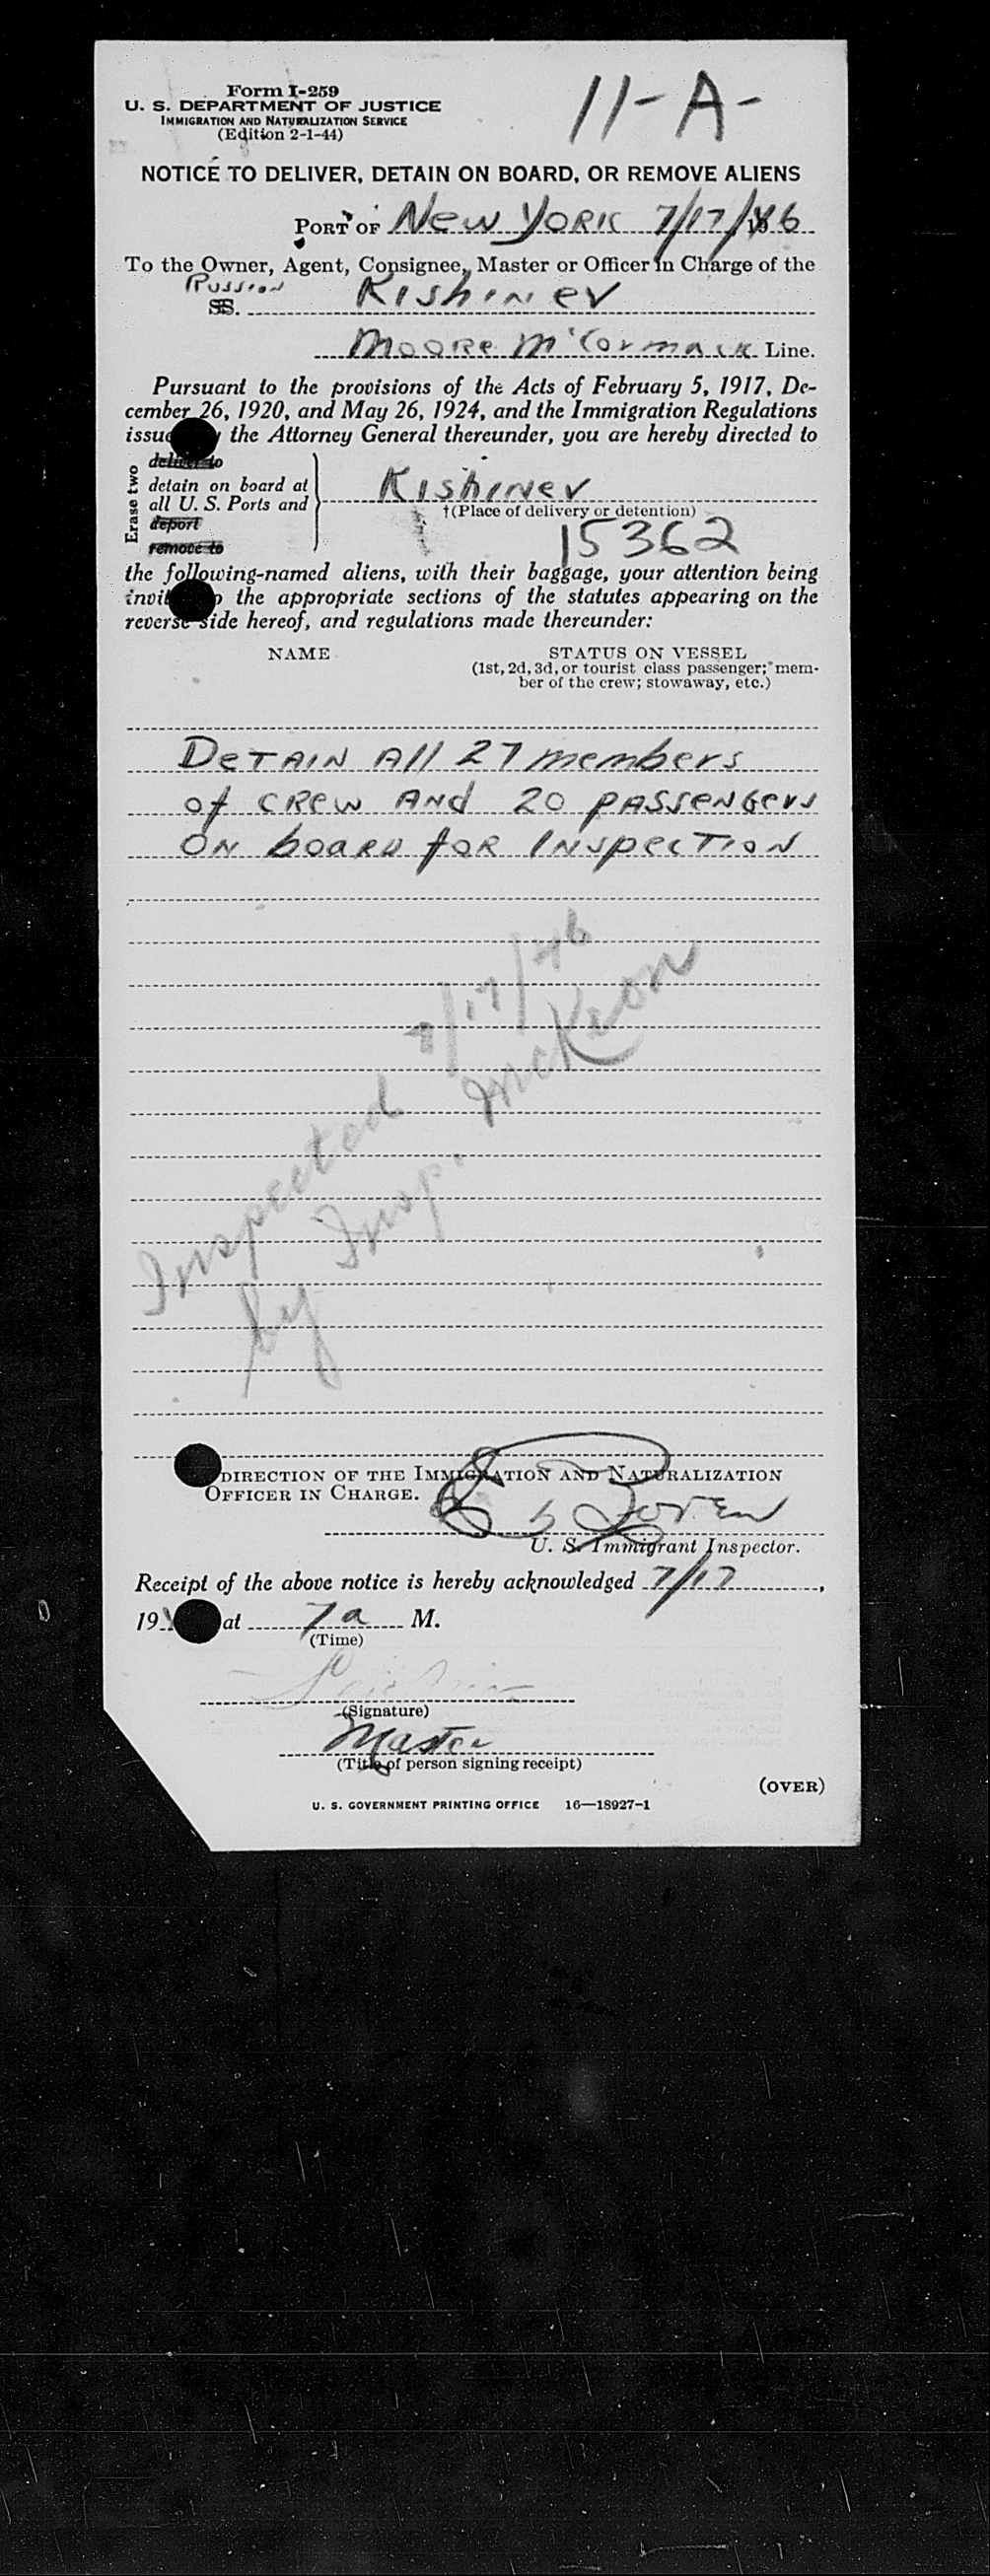 Form I-259
11-A-
U. S. DEPARTMENT OF JUSTICE
IMMIGRATION AND NATURALIZATION SERVICE
(Edition 2-1-44)
NOTICE TO DELIVER, DETAIN ON BOARD, OR REMOVE ALIENS
PORT OF New York 7/17/46
To the Owner, Agent, Consignee, Master or Officer in Charge of the
Russian
SS. Kishinev
Moore McCormack Line.
Pursuant to the provisions of the Acts of February 5, 1917, De-
cember 26, 1920, and May 26, 1924, and the Immigration Regulations
the Attorney General thereunder, you are hereby directed to
Erase two
deliver to
detain on board at
all U. S. Ports and
deport
remove to
Kishinev
†(Place of delivery or detention)
15362
the following-named aliens, with their baggage, your attention being
the appropriate sections of the statutes appearing on the
reverse side hereof, and regulations made thereunder:
NAME STATUS ON VESSEL
(1st, 2d, 3d, or tourist class passenger; mem-
ber of the crew; stowaway, etc.)
Detain All 27 members
of crew and 20 passengers
on board for inspection
Inspected 7/17/46
by Insp. McKeon
DIRECTION OF THE IMMIGRATION AND NATURALIZATION
OFFICER IN CHARGE.
U. S. Immigrant Inspector.
Receipt of the above notice is hereby acknowledged 7/17,
19 at 7 a M.
(Time)
(Signature)
Master
(Title of person signing receipt)
(OVER)
U. S. GOVERNMENT PRINTING OFFICE 16—18927-1